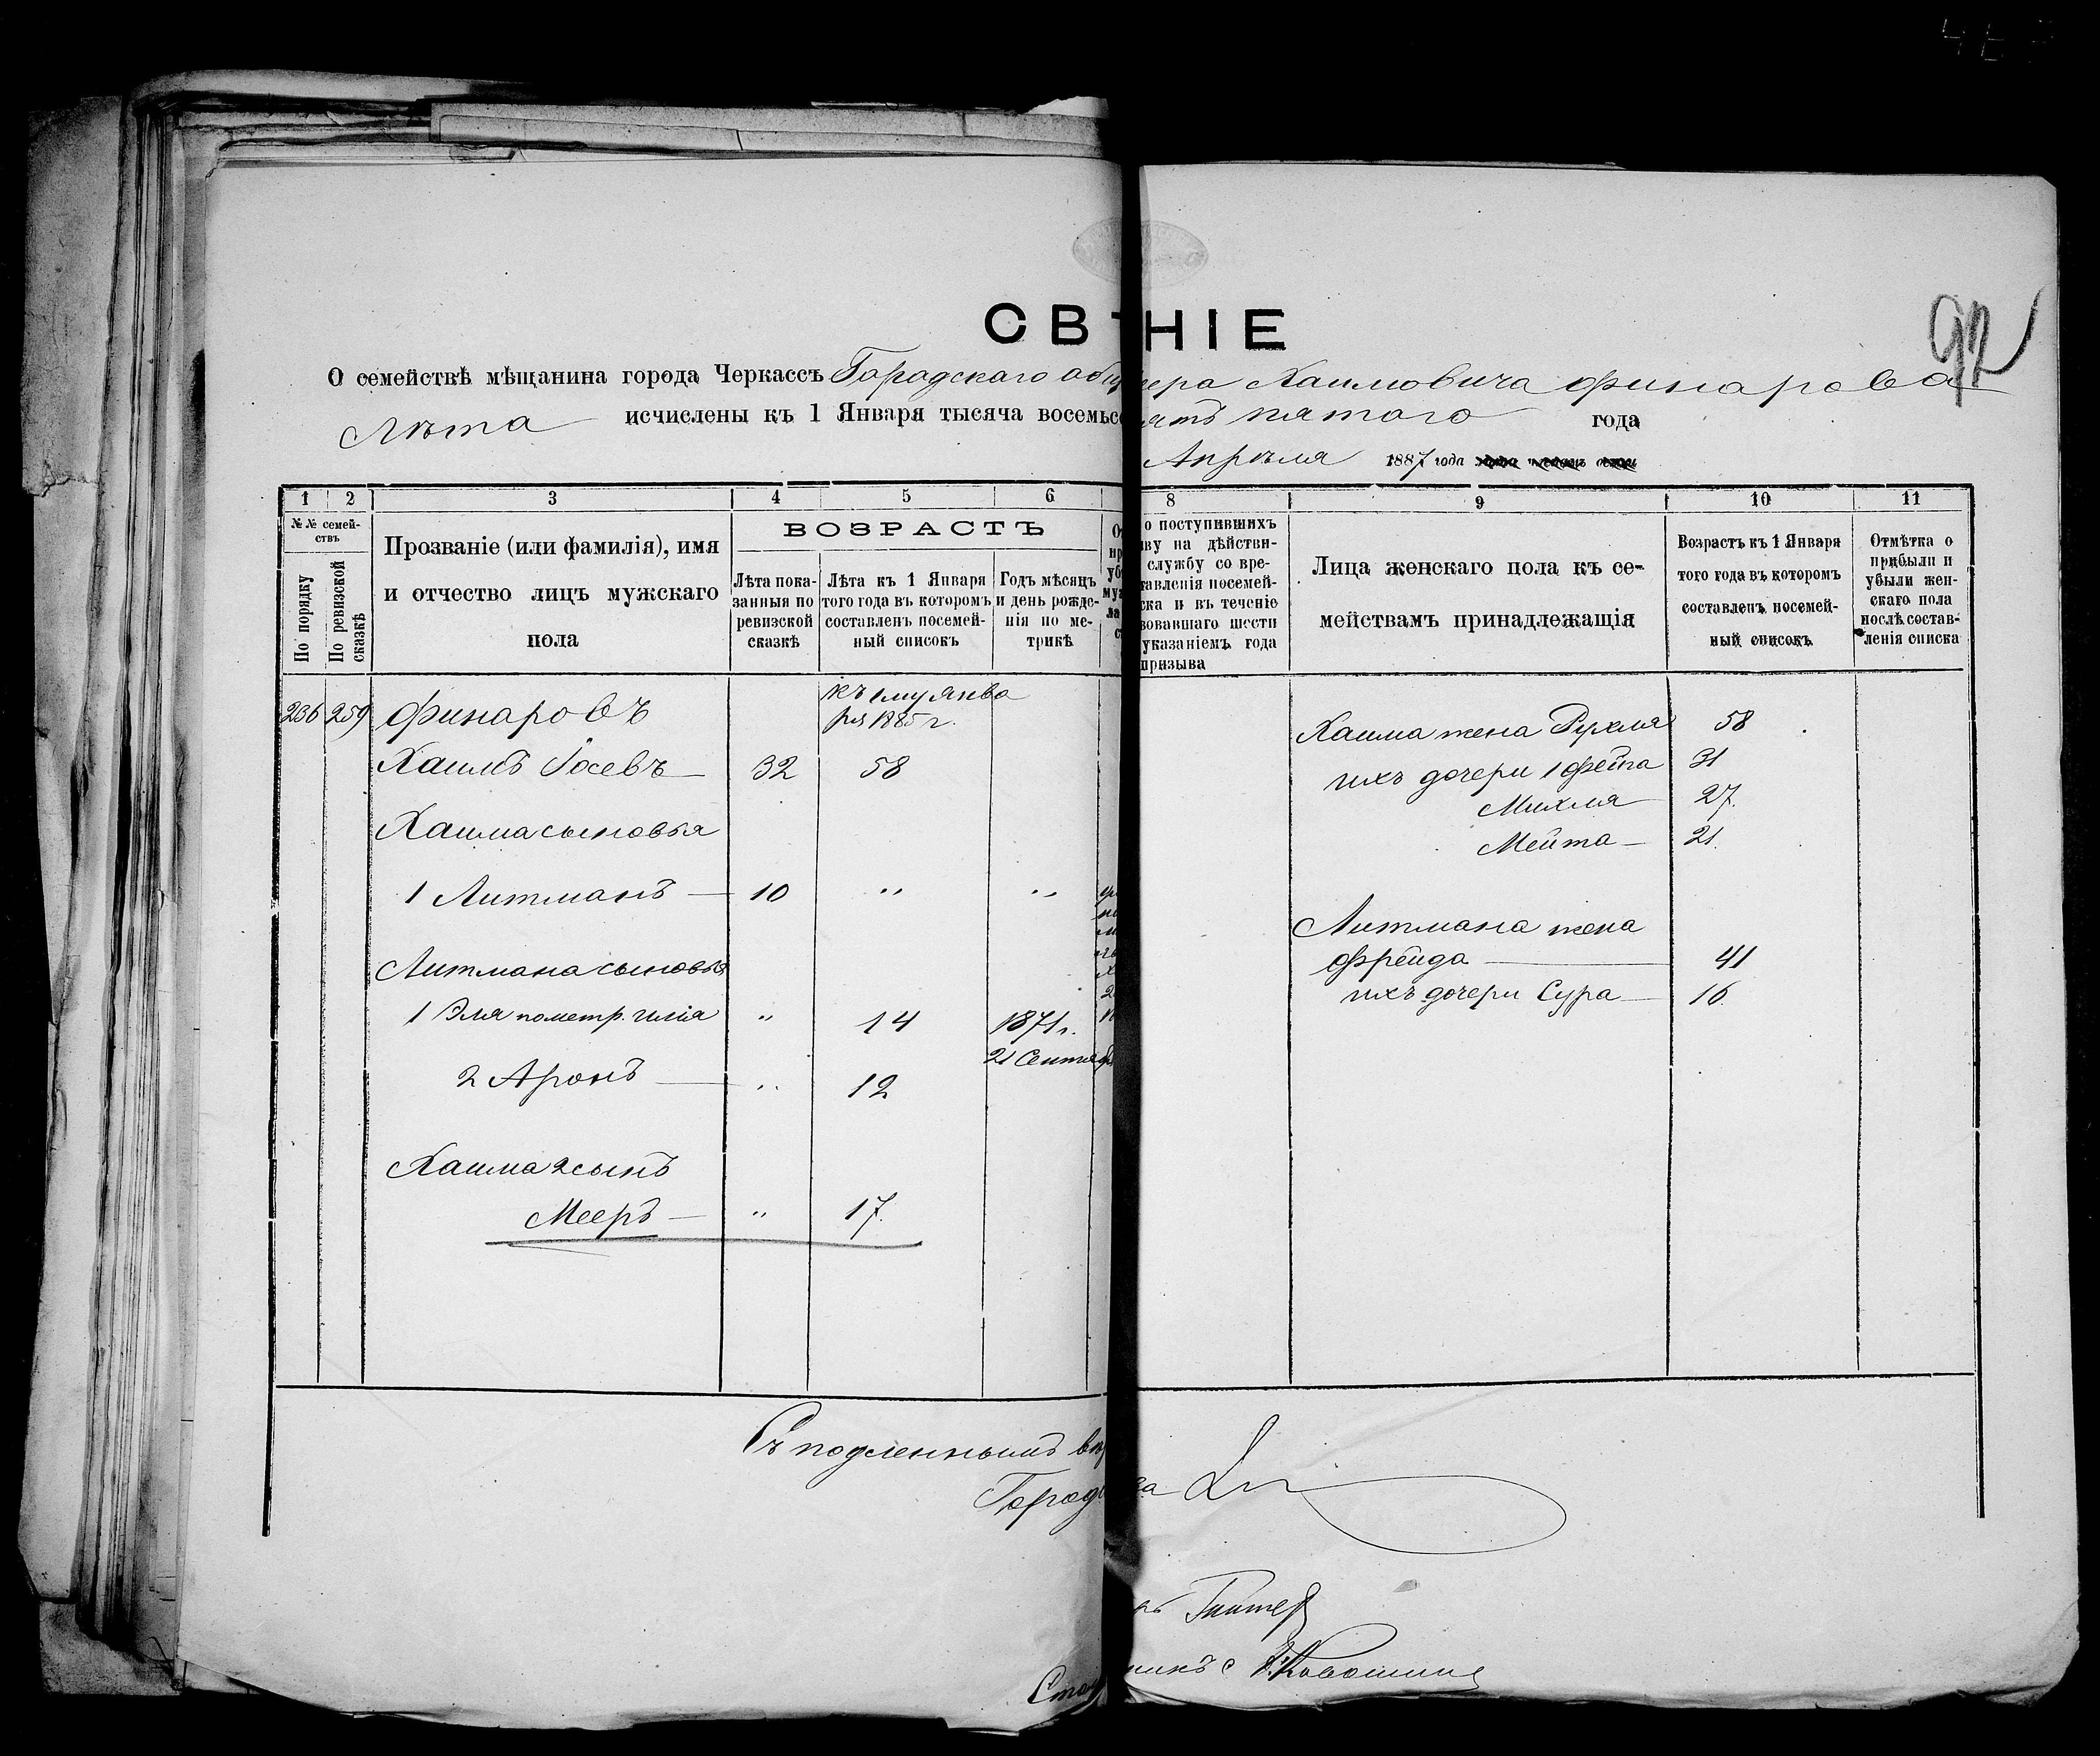 СВ НІЕ
92
О семействѣ мѣщанина города Черкассъ Городскаго общ ера Хаимовича Финарова
Лѣта исчислены къ 1 Января тысяча восемьсо ятъ пятого года
Апрѣля 1887 года
1 2 3 4 5 6 8 9 10 11
№ № семей-
ствъ
По порядку
По ревизской сказкѣ
Прозваніе (или фамилія), имя
и отчество лицъ мужскаго
пола
ВОЗРАСТЪ
Лѣта пока-
занныя по
ревизской
сказкѣ
Лѣта къ 1 Января
того года въ которомъ
составленъ посемей-
ный списокъ
Годъ мѣсяцъ
и день рожде-
нія по ме-
трикѣ
о поступившихъ
ву на дѣйстви-
службу со вре-
тавленія посемей-
ска и въ теченіе
вовавшаго шести
указаніемъ года
призыва
Лица женскаго пола къ се-
мействамъ принадлежащія
Возрастъ къ 1 Января
того года въ которомъ
составленъ посемей-
ный списокъ
Отмѣтка о
прибыли и
убыли жен-
скаго пола
послѣ состав-
ленія списка
236 259 Финаровъ
къ 1му Янва
ря 1885 г.
Хаимъ Іосевъ 32 58
Хаима сыновья
1 Литманъ 10 " "
Литмана сыновья
1 Эля по метр. Илія " 14 1871 г.
21 Сентября
2 Аронъ " 12
Хаима 2 сынъ
Мееръ " 17.
Хаима жена Рухля 58
ихъ дочери 1 Фейга 31
Михля 27.
Мейта 21.
Литмана жена
Фрейда 41
ихъ дочери Сура 16.
Съ подленнымъ вѣ
Город ва
Стол никъ